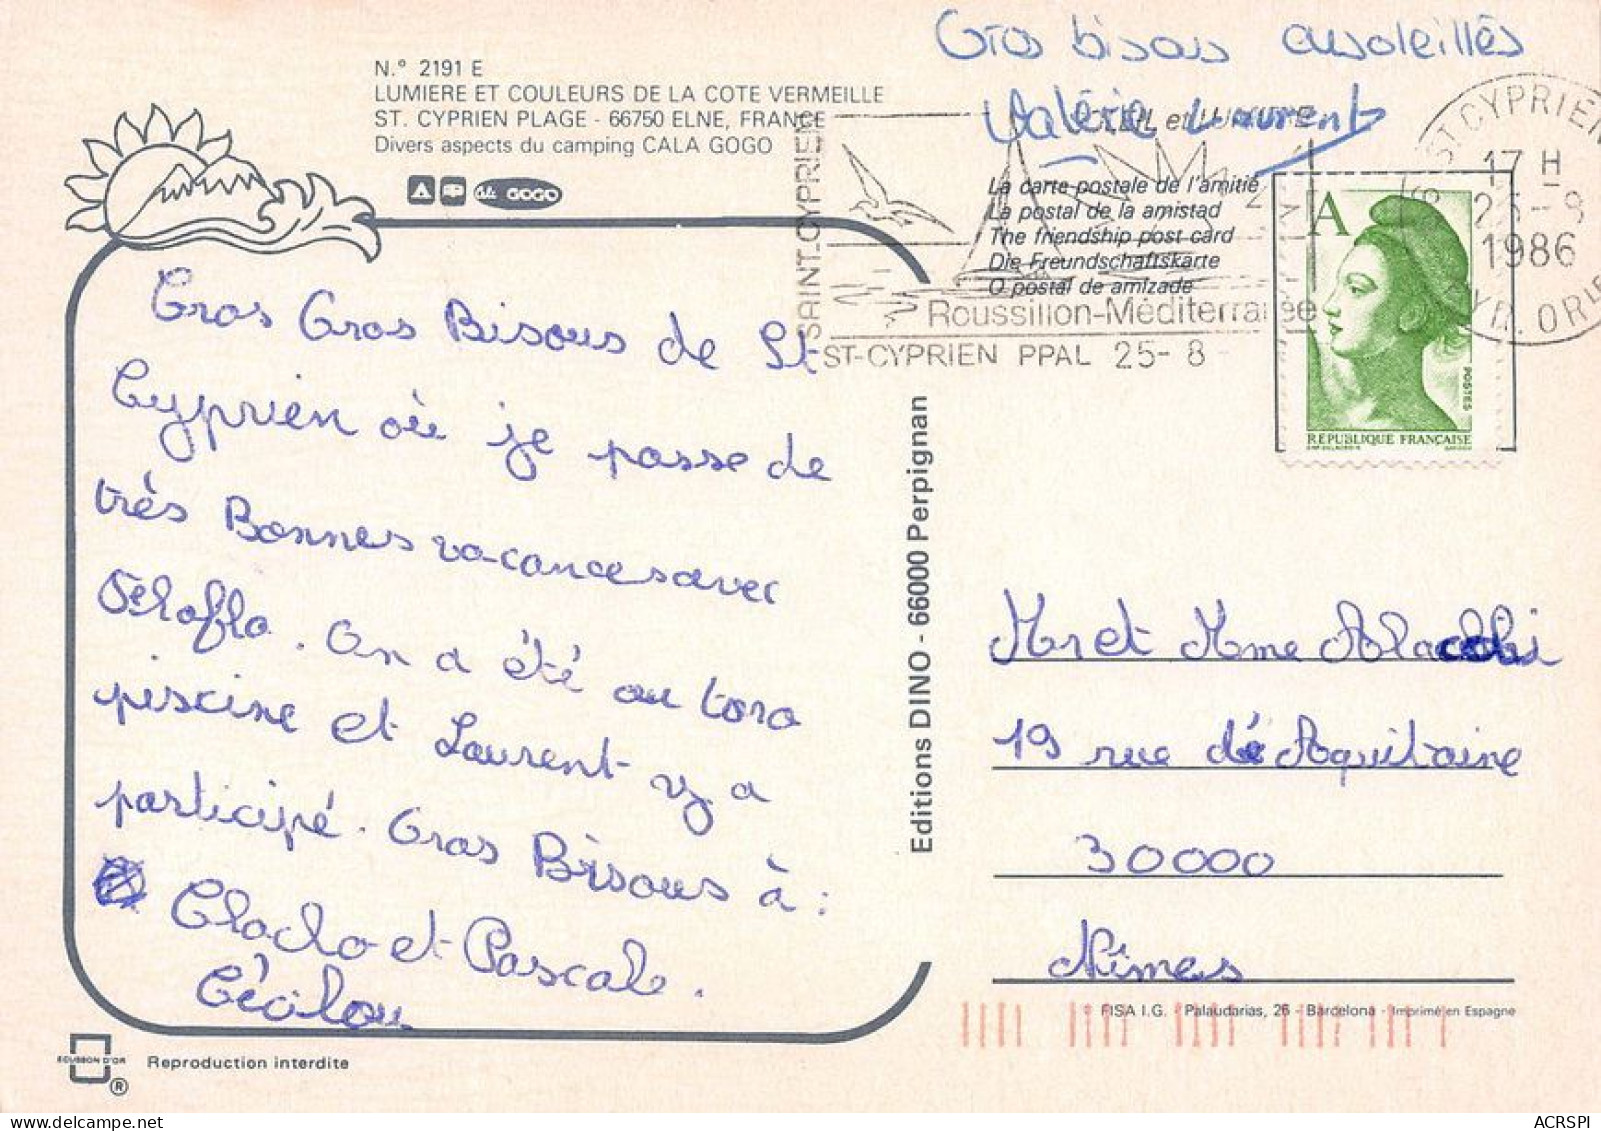 Gros bisous ensoleillés
Valérie Laurent
N.° 2191 E
LUMIERE ET COULEURS DE LA COTE VERMEILLE
ST. CYPRIEN PLAGE - 66750 ELNE, FRANCE
Divers aspects du camping CALA GOGO
GOGO
SAINT-CYPRIEN
SOLEIL et LUMIERE
La carte postale de l'amitié
La postal de la amistad
The friendship post card
Die Freundschaftskarte
O postal de amizade
Roussillon-Méditerranée
ST-CYPRIEN PPAL 25-8
ST CYPRIEN
17 H
25-8
1986
PYR. ORles
A
POSTES
REPUBLIQUE FRANÇAISE
Gros Gros Bisous de St
Cyprien où je passe de
très Bonnes vacances avec
. On a été au toro
piscine et Laurent y a
participé. Gros Bisous à :
Cloclo et Pascale.
Cécilou
Editions DINO - 66000 Perpignan
Mr et Mme
19 rue d'Aquitaine
30000
Nîmes
© FISA I.G. - Palaudarias, 26 - Barcelona - Imprimé en Espagne
ECUSSON D'OR
®
Reproduction interdite
ACRSPI